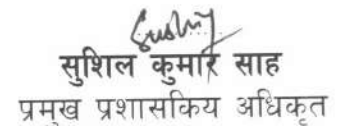 सुशिल कुमार साह
प्रमुख प्रशासकिय अधिकृत